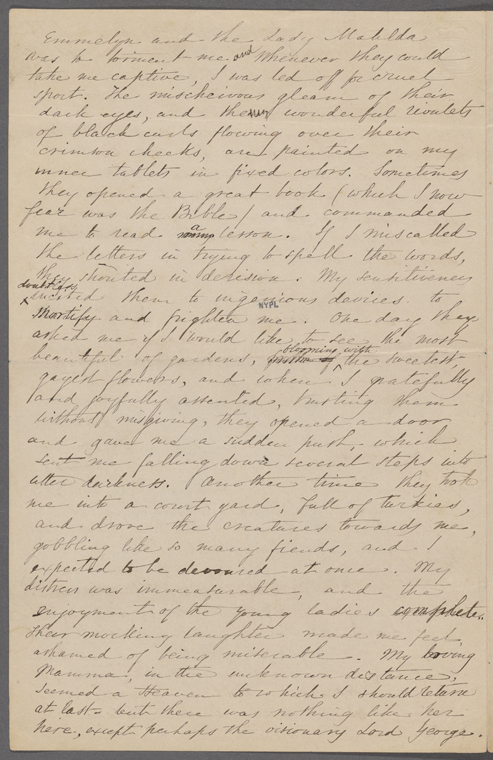 Emmelyn and the Lady Matilda
was to torment me and whenever they could
take me captive, I was led off for cruel
sport. The mischeivous gleam of their
dark eyes, and the wonderful rivulets
of black curls flowing over their
crimson cheeks, are painted on my
inner tablets in fixed colors. Sometimes
they opened a great book (which I now
fear was the Bible) and commanded
me to read a lesson. If I miscalled
the letters in trying to spell the words,
they shouted in derision. My sensitiveness
doubtless
incited them to ingenious devices to
NYPL
mortify and frighten me. One day they
asked me if I would like to see the most
blooming with
beautiful of gardens, the sweetest,
gayest flowers, and when I gratefully
and joyfully assented, trusting them
without misgiving, they opened a door
and gave me a sudden push, which
sent me falling down several steps into
utter darkness. Another time they took
me into a court yard, full of turkies,
and drove the creatures towards me,
gobbling like so many fiends, and I
expected to be devoured at once. My
distress was immeasurable, and the
enjoyment of the young ladies complete.
Their mocking laughter made me feel
ashamed of being miserable. My loving
Mamma, in the unknown distance,
seemed a Heaven to which I should return
at last— but there was nothing like her
here, except perhaps the visionary Lord George.